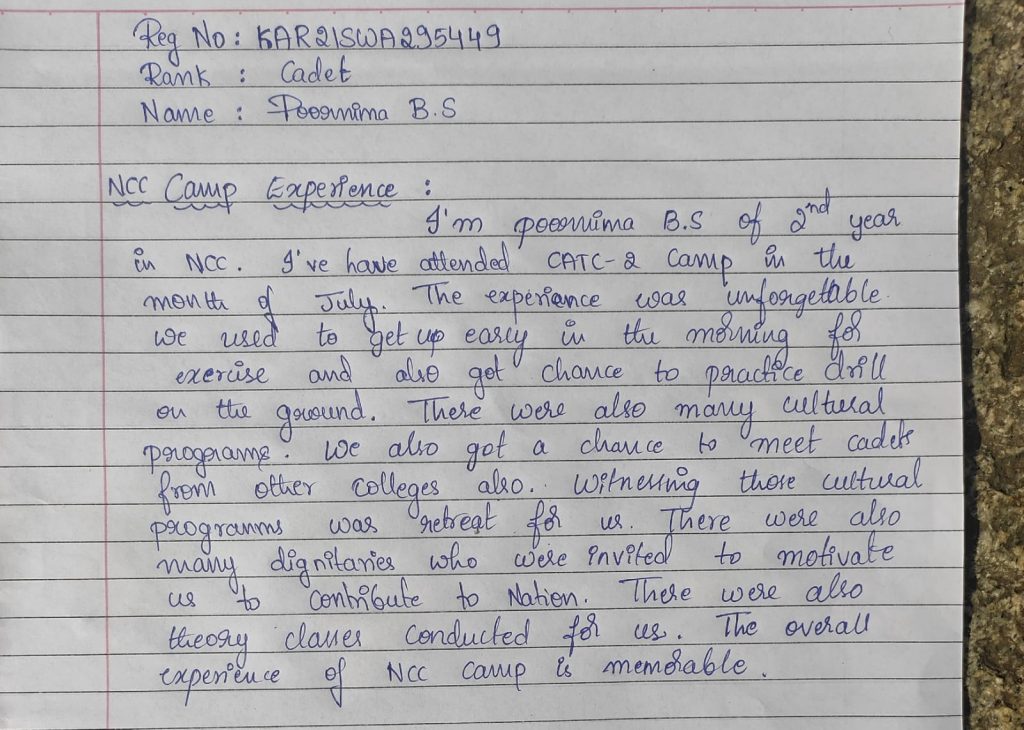 Reg No : KAR21SWA295449
Rank : Cadet
Name : Poornima B.S
NCC Camp Experience :
I'm poornima B.S of 2nd year
in NCC. I've have attended CATC-2 Camp in the
month of July. The experiance was unforgettable.
we used to get up early in the morning for
exercise and also got chance to practice drill
on the ground. There were also many cultural
programs. We also got a chance to meet cadets
from other colleges also. Witnessing those cultural
programms was retreat for us. There were also
many dignitaries who were invited to motivate
us to contribute to Nation. There were also
theory classes conducted for us. The overall
experience of NCC camp is memorable.